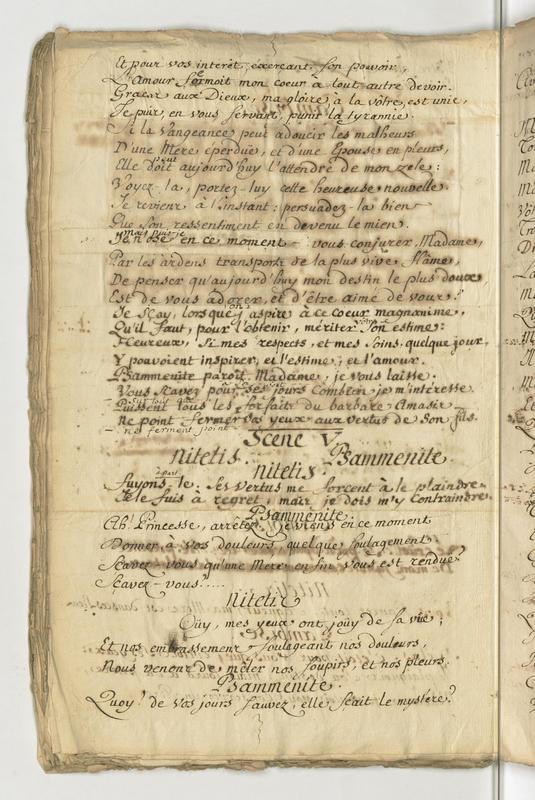 Et pour vos interêt, exerçant son pouvoir,
L'Amour fermoit mon coeur à tout autre devoir.
Graces aux Dieux, ma gloire à la vôtre, est unie,
Je puis, en vous servant, punir la tyrannie.
Si la vangeance peut adoucir les malheurs
D'une Mere éperdue, et d'une Epouse en pleurs,
Elle doit aujourd'huy l'attendre de mon zele:
Voyez-la, portez-luy cette heureuse nouvelle.
Je reviens à l'instant: persuadez-la bien
Que son ressentiment en devenu le mien.
Mais puis-je
J'n'ose en ce moment vous conjurer, Madame,
Par les ardens transports de la plus vive flâme,
De penser qu'aujourd'huy mon destin le plus doux,
Est de vous adorer, et d'être aimé de vous?
Je sçay, lorsque j'aspire à ce coeur magnanime,
Qu'il faut, pour l'obtenir, mériter son estime:
Heureux, si mes respects, et mes soins quelque jour,
Y pouvoient inspirer, et l'estime, et l'amour.
Psammenite paroît, Madame, je vous laisse.
Vous sçavez pour ses jours combien je m'intéresse.
Puissent tous les forfaits du barbare Amasis
Ne point fermer vos yeux aux vertus de son fils.
ne ferment point
Scene V
Nitetis. Psammenite.
Nitetis.
à part
Fuyons-le. Ses vertus me forcent à le plaindre.
Je le fuis à regret, mais je dois m'y contraindre.
Psammenite.
Ah! Princesse, arrêtez, je viens en ce moment
Donner à vos douleurs, quelque soulagement
Sçavez-vous qu'une Mere enfin vous est rendue?
Sçavez-vous?....
Nitetis
Oüy, mes yeux ont joüy de sa vüe;
Et nos embrassemens soulageant nos douleurs,
Nous venons de mêler nos soupirs, et nos pleurs.
Psammenite.
Quoy! de vos jours sauvez, elle sçait le mystere?